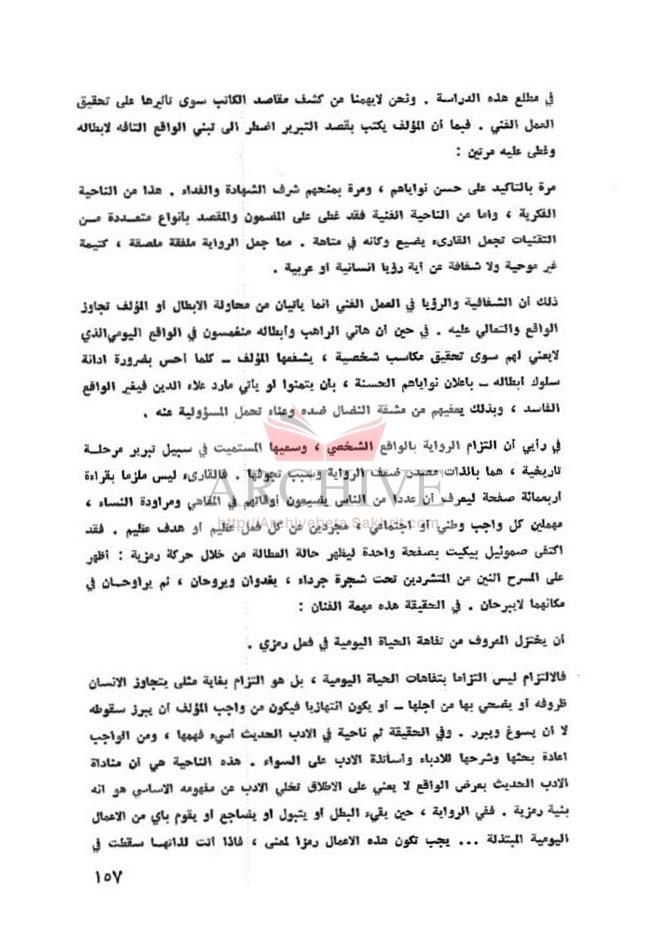 في مطلع هذه الدراسة . ونحن لايهمنا من كشف مقاصد الكاتب سوى تأثيرها على تحقيق
العمل الفني . فبما أن المؤلف يكتب بقصد التبرير اضطر الى تبني الواقع التافه لابطاله
وغطى عليه مرتين :
مرة بالتاكيد على حسن نواياهم ، ومرة بمنحهم شرف الشهادة والفداء . هذا من الناحية
الفكرية ، واما من الناحية الفنية فقد غطى على المضمون والمقصد بأنواع متعـددة مـن
التقنيات تجعل القارىء يضيع وكانه في متاهة . مما جعل الرواية ملفقة ملصقة ، كتيمة
غير موحية ولا شفافة عن أية رؤيا انسانية او عربية .
ذلك أن الشفافية والرؤيا في العمل الفني انما يأتيان من محاولة الابطال أو المؤلف تجاوز
الواقع والتعالي عليه . في حين أن هاني الراهب وأبطاله منغمسون في الواقع اليومي الذي
لايعني لهم سوى تحقيق مكاسب شخصية ، يشفعها المؤلف ــ كلما أحس بضرورة ادانة
سلوك ابطاله ــ باعلان نواياهم الحسنة ، بان يتمنوا لو يأتي مارد علاء الدين فيغير الواقع
الفاسد ، وبذلك يعفيهم من مشقة النضال ضده وعناء تحمل المسؤولية عنه .
في رأيي أن التزام الرواية بالواقع الشخصي ، وسعيها المستميت في سبيل تبرير مرحلـة
تاريخية ، هما بالذات مصدر ضعف الرواية وسبب تجوفها . فالقارىء ليس ملزما بقراءة
اربعمائة صفحة ليعرف أن عددا من الناس يضيعون أوقاتهم في المقاهي ومراودة النساء ،
مهملين كل واجب وطني أو اجتماعي ، مجردين عن كل فعل عظيم او هدف عظيم . فقد
اكتفى صموئيل بيكيت بصفحة واحدة ليظهر حالة العطالة من خلال حركة رمزية : أظهر
على المسرح اثنين من المتشردين تحت شجرة جرداء ، يغدوان ويروحان ، ثم يراوحـان في
مكانهما لايبرحان . في الحقيقة هذه مهمة الفنان :
أن يختزل المعروف من تفاهة الحياة اليومية في فعل رمزي .
فالالتزام ليس التزاما بتفاهات الحياة اليومية ، بل هو التزام بغاية مثلى يتجاوز الانسان
ظروفه أو يضحي بها من اجلها ــ أو يكون انتهازيا فيكون من واجب المؤلف أن يبرز سقوطه
لا أن يسوغ ويبرر . وفي الحقيقة ثم ناحية في الادب الحديث أسيء فهمها ، ومن الواجب
اعادة بحثها وشرحها للادباء وأساتذة الادب على السواء . هذه الناحية هي أن مناداة
الادب الحديث بعرض الواقع لا يعني على الاطلاق تخلي الادب عن مفهومه الاساسي هو انه
بنية رمزية . ففي الرواية ، حين يقيء البطل أو يتبول او يضاجع او يقوم بأي من الاعمال
اليومية المبتذلة ... يجب تكون هذه الاعمال رمزا لمعنى ، فاذا أتت لذاتهـا سقطت في
١٥٧
ARCHIVE
http://Archivebeta.Sakhrit.com